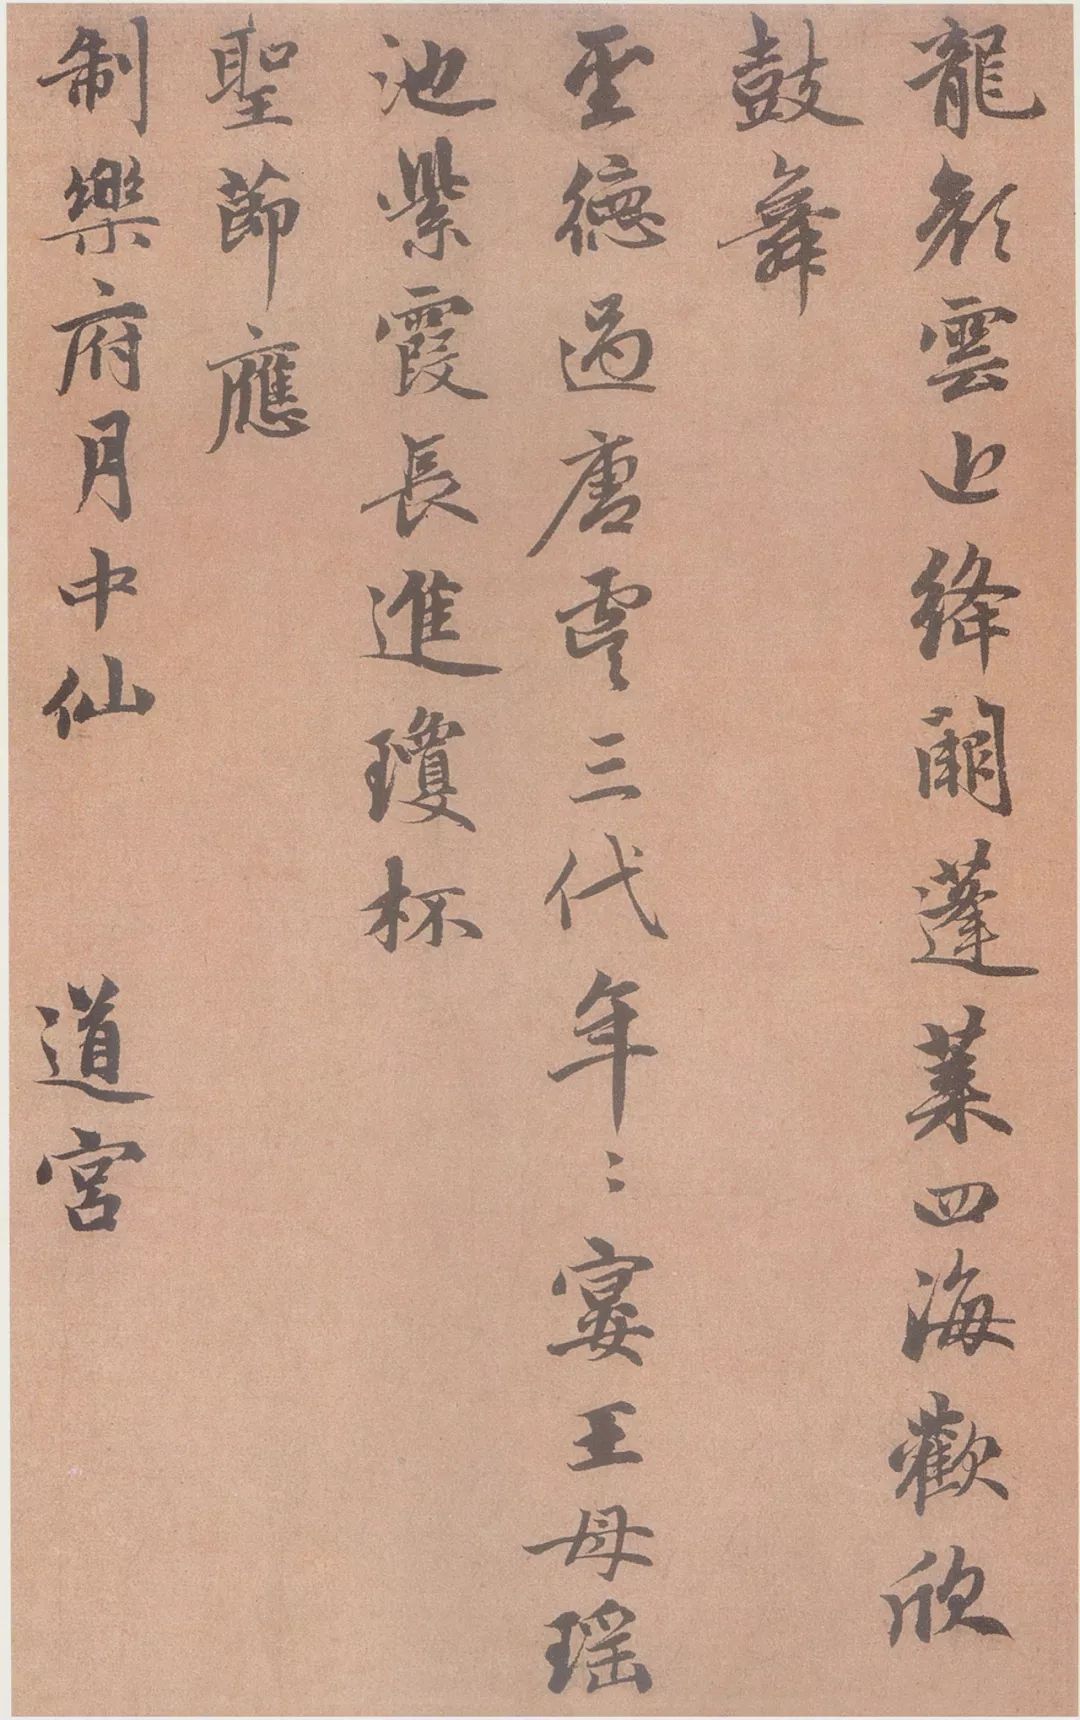 龍顔雲上絳闕蓬萊四海歡欣
鼓舞
聖德過唐虞三代年〻宴王母瑶
池紫霞長進瓊杯
聖節應
制樂府月中仙 道宮